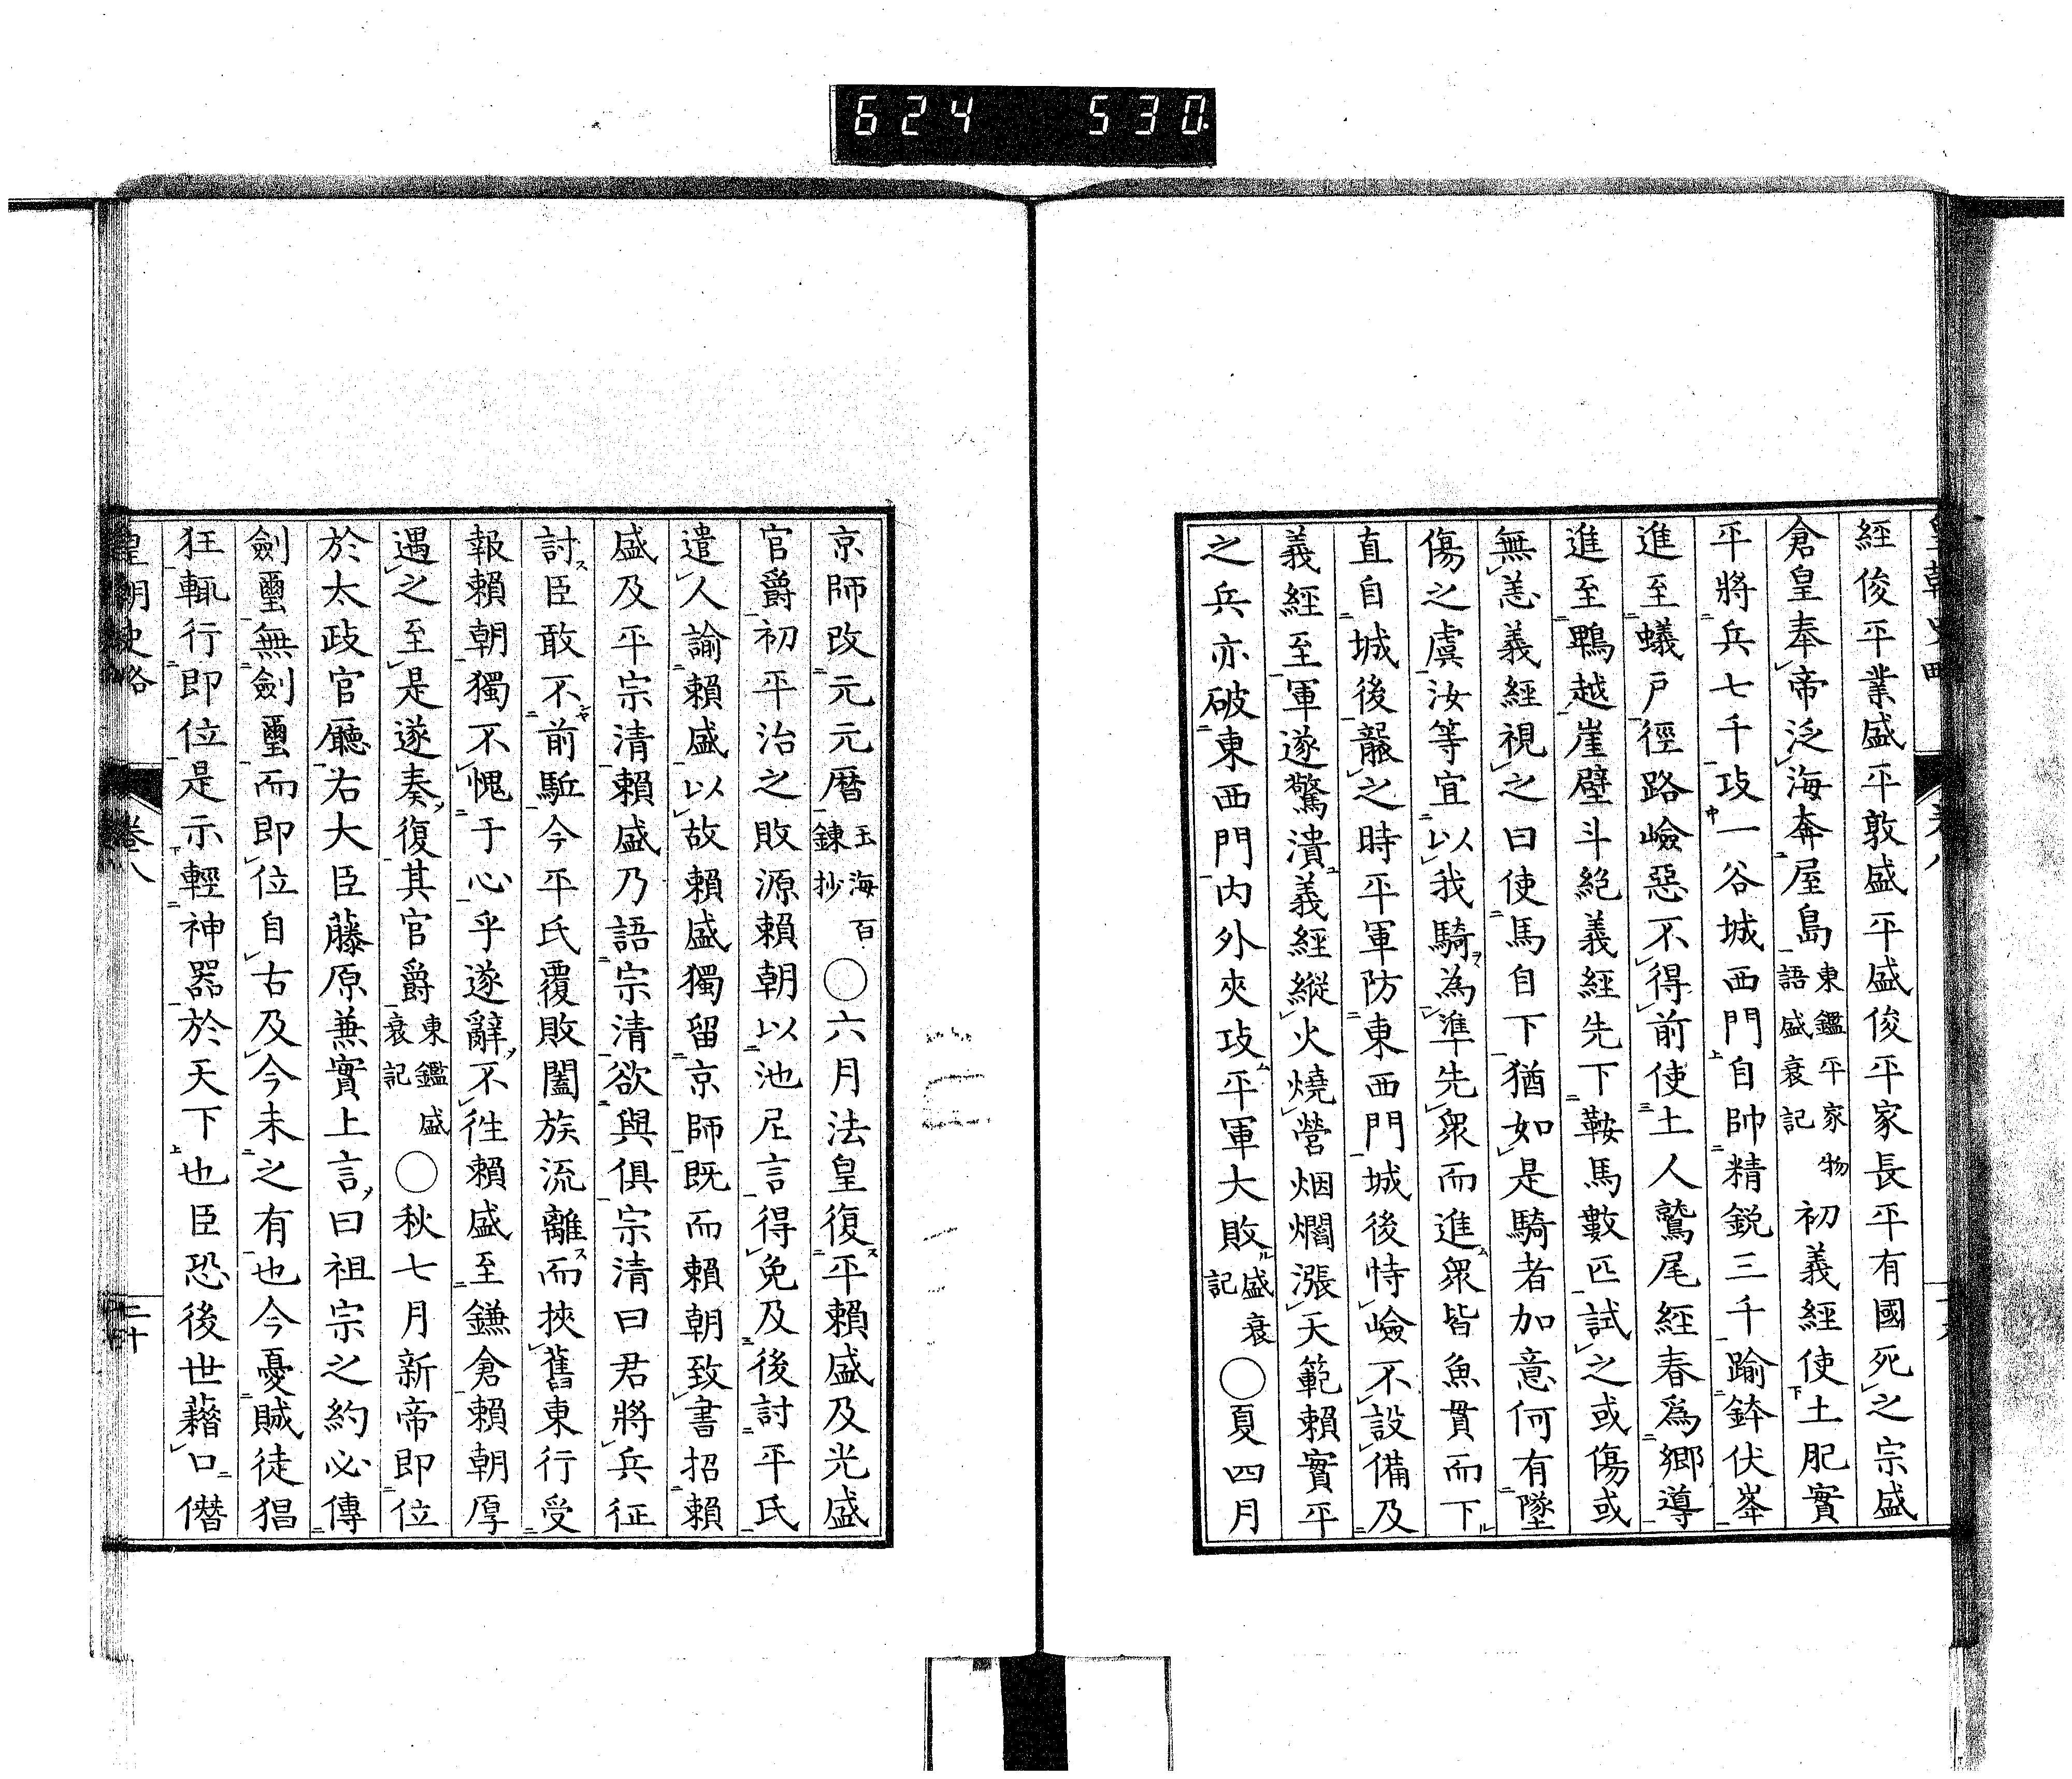 624 530
皇朝史略 卷八 十九
經俊平業盛平敦盛平盛俊平家長平有國死之宗盛
倉皇奉帝泛海奔屋島東鑑平家物語盛衰記初義經使土肥實
平將兵七千攻一谷城西門自帥精鋭三千踰鉢伏峯
進至蟻戸徑路嶮惡不得前使土人鷲尾經春爲郷導
進至鵯越崖壁斗絶義經先下鞍馬數匹試之或傷或
無恙義經視之曰使馬自下猶如是騎者加意何有墜
傷之虞汝等宜以我騎為準先衆而進衆皆魚貫而下
直自城後龑之時平軍防東西門城後恃嶮不設備及
義經至軍遂驚潰義經縱火燒營烟爛漲天範賴實平
之兵亦破東西門内外夾攻平軍大敗盛衰記○夏四月
京師改元元暦玉海百錬抄○六月法皇復平賴盛及光盛
官爵初平治之敗源賴朝以池尼言得免及後討平氏
遣人諭賴盛以故賴盛獨留京師既而賴朝致書招賴
盛及平宗清賴盛乃語宗清欲與俱宗清曰君將兵征
討臣敢不前駈今平氏覆敗闔族流離而挾舊東行受
報賴朝獨不愧于心乎遂辭不徃賴盛至鎌倉賴朝厚
遇之至是遂奏復其官爵東鑑盛衰記○秋七月新帝即位
於太政官廳右大臣藤原兼實上言曰祖宗之約必傳
劍璽無劍璽而即位自古及今未之有也今憂賊徒猖
狂輒行即位是示輕神器於天下也臣恐後世藉口僭
皇朝史略 卷八 二十